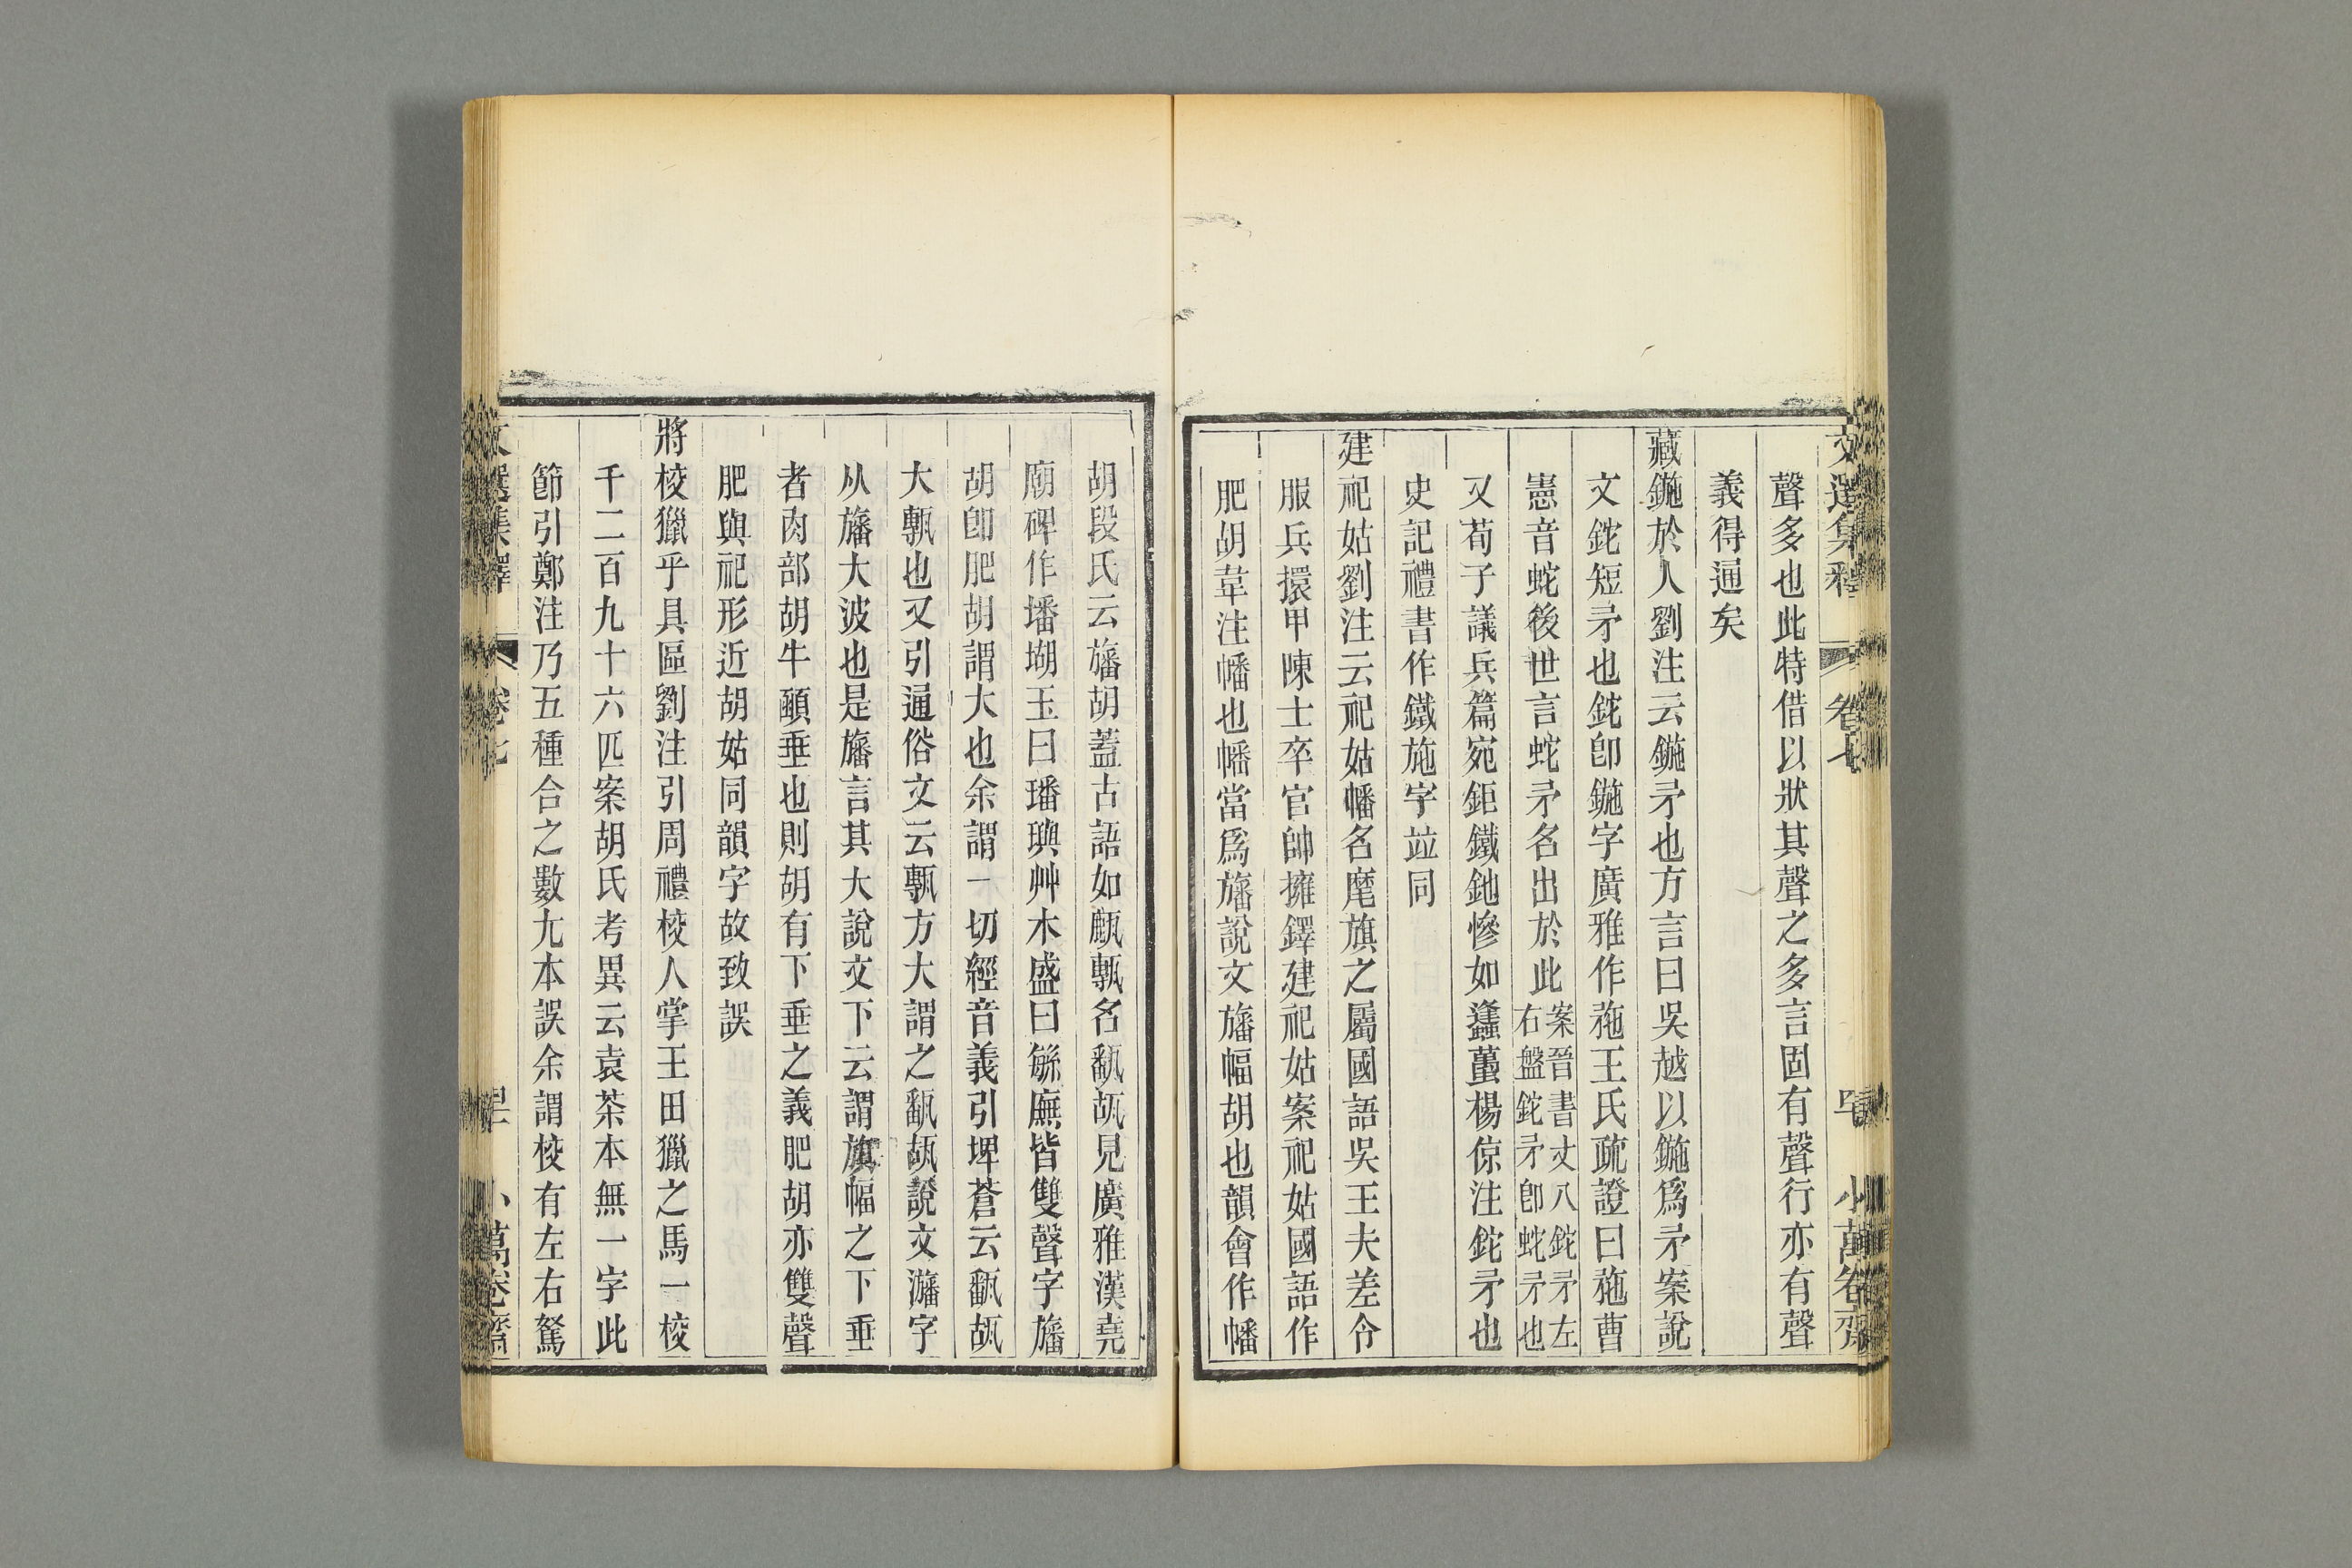 文選集釋 卷七 小萬卷齋
聲多也此特借以狀其聲之多言固有聲行亦有聲
義得通矣
藏鍦於人劉注云鍦矛也方言曰吳越以鍦爲矛案說
文鉈短矛也鉈卽鍦字廣雅作䂠王氏疏證曰䂠曹
憲音蛇後世言蛇矛名出於此案晉書丈八鉈矛左
右盤鉈矛卽蛇矛也
又荀子議兵篇宛鉅鐵釶慘如蠭蠆楊倞注鉈矛也
史記禮書作鐵施字竝同
建祀姑劉注云祀姑幡名麾旗之屬國語吳王夫差令
服兵擐甲陳士卒官帥擁鐸建祀姑案祀姑國語作
肥胡韋注幡也幡當爲旛說文旛幅胡也韻會作幡
胡段氏云旛胡蓋古語如甂甎名㼼瓳見廣雅漢堯
廟碑作墦堋玉曰璠璵艸木盛曰緐廡皆雙聲字旛
胡卽肥胡謂大也余謂一切經音義引埤蒼云㼼瓳
大甎也又引通俗文云甎方大謂之㼼瓳說文㶕字
从旛大波也是旛言其大說文下云謂旗幅之下垂
者肉部胡牛顄垂也則胡有下垂之義肥胡亦雙聲
肥與祀形近胡姑同韻字故致誤
將校獵乎具區劉注引周禮校人掌王田獵之馬一校
千二百九十六匹案胡氏考異云袁茶本無一字此
節引鄭注乃五種合之數尤本誤余謂校有左右駑
文選集釋 卷七 小萬卷齋